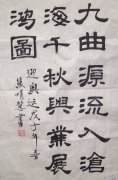 九曲源流入滄
海千秋興業展
鴻圖
迎奥运戊子年春